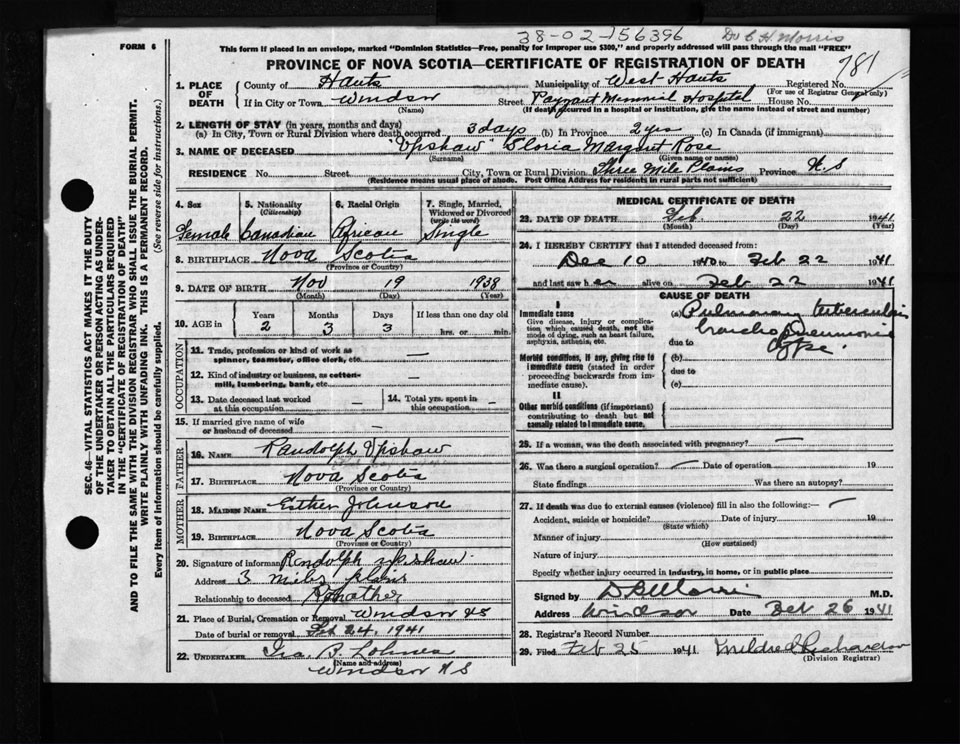 38-02-156396
Dr C H Morris
781
FORM 6
This form if placed in an envelope, marked "Dominion Statistics—Free, penalty for improper use $300," and properly addressed will pass through the mail "FREE"
PROVINCE OF NOVA SCOTIA—CERTIFICATE OF REGISTRATION OF DEATH
1. PLACE OF DEATH
County of Hants Municipality of West Hants Registered No.
(For use of Registrar General only)
If in City or Town Windsor Street Payzant Memorial Hospital House No.
(Name) (If death occurred in a hospital or institution, give the name instead of street and number)
2. LENGTH OF STAY (in years, months and days)
(a) In City, Town or Rural Division where death occurred 3 days (b) In Province 2 yrs (c) In Canada (if immigrant)
3. NAME OF DECEASED "Upshaw" Gloria Margaret Rose
(Surname) (Given name or names)
RESIDENCE No. Street City, Town or Rural Division Three Mile Plains Province N.S
(Residence means usual place of abode. Post Office Address for residents in rural parts not sufficient)
4. Sex Female
5. Nationality (Citizenship) Canadian
6. Racial Origin African
7. Single, Married, Widowed or Divorced (write the word) Single
8. BIRTHPLACE Nova Scotia
(Province or Country)
9. DATE OF BIRTH Nov 19 1938
(Month) (Day) (Year)
10. AGE in Years Months Days If less than one day old
2 3 3 hrs. or min.
OCCUPATION
11. Trade, profession or kind of work as spinner, teamster, office clerk, etc. —
12. Kind of industry or business, as cotton-mill, lumbering, bank, etc. —
13. Date deceased last worked at this occupation —
14. Total yrs. spent in this occupation —
15. If married give name of wife or husband of deceased —
FATHER
16. NAME Randolph Upshaw
17. BIRTHPLACE Nova Scotia
(Province or Country)
MOTHER
18. MAIDEN NAME Esther Johnson
19. BIRTHPLACE Nova Scotia
(Province or Country)
20. Signature of informant Randolph upshaw
Address 3 miles plains
Relationship to deceased father
21. Place of Burial, Cremation or Removal Windsor NS
Date of burial or removal Feb 24. 1941
22. UNDERTAKER Ira B. Lohnes
(Name and address)
Windsor N S
MEDICAL CERTIFICATE OF DEATH
23. DATE OF DEATH Feb. 22 1941
(Month) (Day) (Year)
24. I HEREBY CERTIFY that I attended deceased from:
Dec 10 1940 to Feb 22 1941
and last saw her alive on Feb 22 1941
CAUSE OF DEATH
I
Immediate cause
Give disease, injury or complication which caused death, not the mode of dying, such as heart failure, asphyxia, asthenia, etc.
(a) Pulmonary tuberculosis
broncho pneumonic
type.
due to
Morbid conditions, if any, giving rise to immediate cause (stated in order proceeding backwards from immediate cause).
(b)
due to
(c)
II
Other morbid conditions (if important) contributing to death but not causally related to immediate cause.
25. If a woman, was the death associated with pregnancy? —
26. Was there a surgical operation? — Date of operation 19
State findings Was there an autopsy?
27. If death was due to external causes (violence) fill in also the following:— —
Accident, suicide or homicide? Date of injury 19
(State which)
Manner of injury
(How sustained)
Nature of injury
Specify whether injury occurred in industry, in home, or in public place
Signed by Morris M.D.
Address Windsor Date Feb 26 1941
28. Registrar's Record Number
29. Filed Feb 25 1941 Mildred Richardson
(Division Registrar)
SEC. 46—VITAL STATISTICS ACT MAKES IT THE DUTY OF THE UNDERTAKER OR PERSON ACTING AS UNDERTAKER TO OBTAIN ALL THE PARTICULARS REQUIRED IN THE "CERTIFICATE OF REGISTRATION OF DEATH" AND TO FILE THE SAME WITH THE DIVISION REGISTRAR WHO SHALL ISSUE THE BURIAL PERMIT.
WRITE PLAINLY WITH UNFADING INK. THIS IS A PERMANENT RECORD.
Every item of information should be carefully supplied. (See reverse side for instructions.)